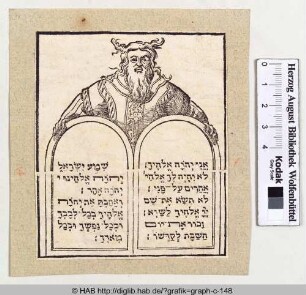 אני יהוה אלהיך:
לא יהיה לך אלהי
אחרים על פני:
לא תשא את שם
אלהיך לשוא:
זכור את יום
השבת לקדשו:
שמע ישראל
יהוה אלהינו
יהוה אחד:
ואהבת את יהוה
אלהיך בכל לבבך
ובכל נפשך ובכל
מאדך:
Herzog August Bibliothek Wolfenbüttel
Kodak
© HAB http://diglib.hab.de/?grafik=graph-c-148